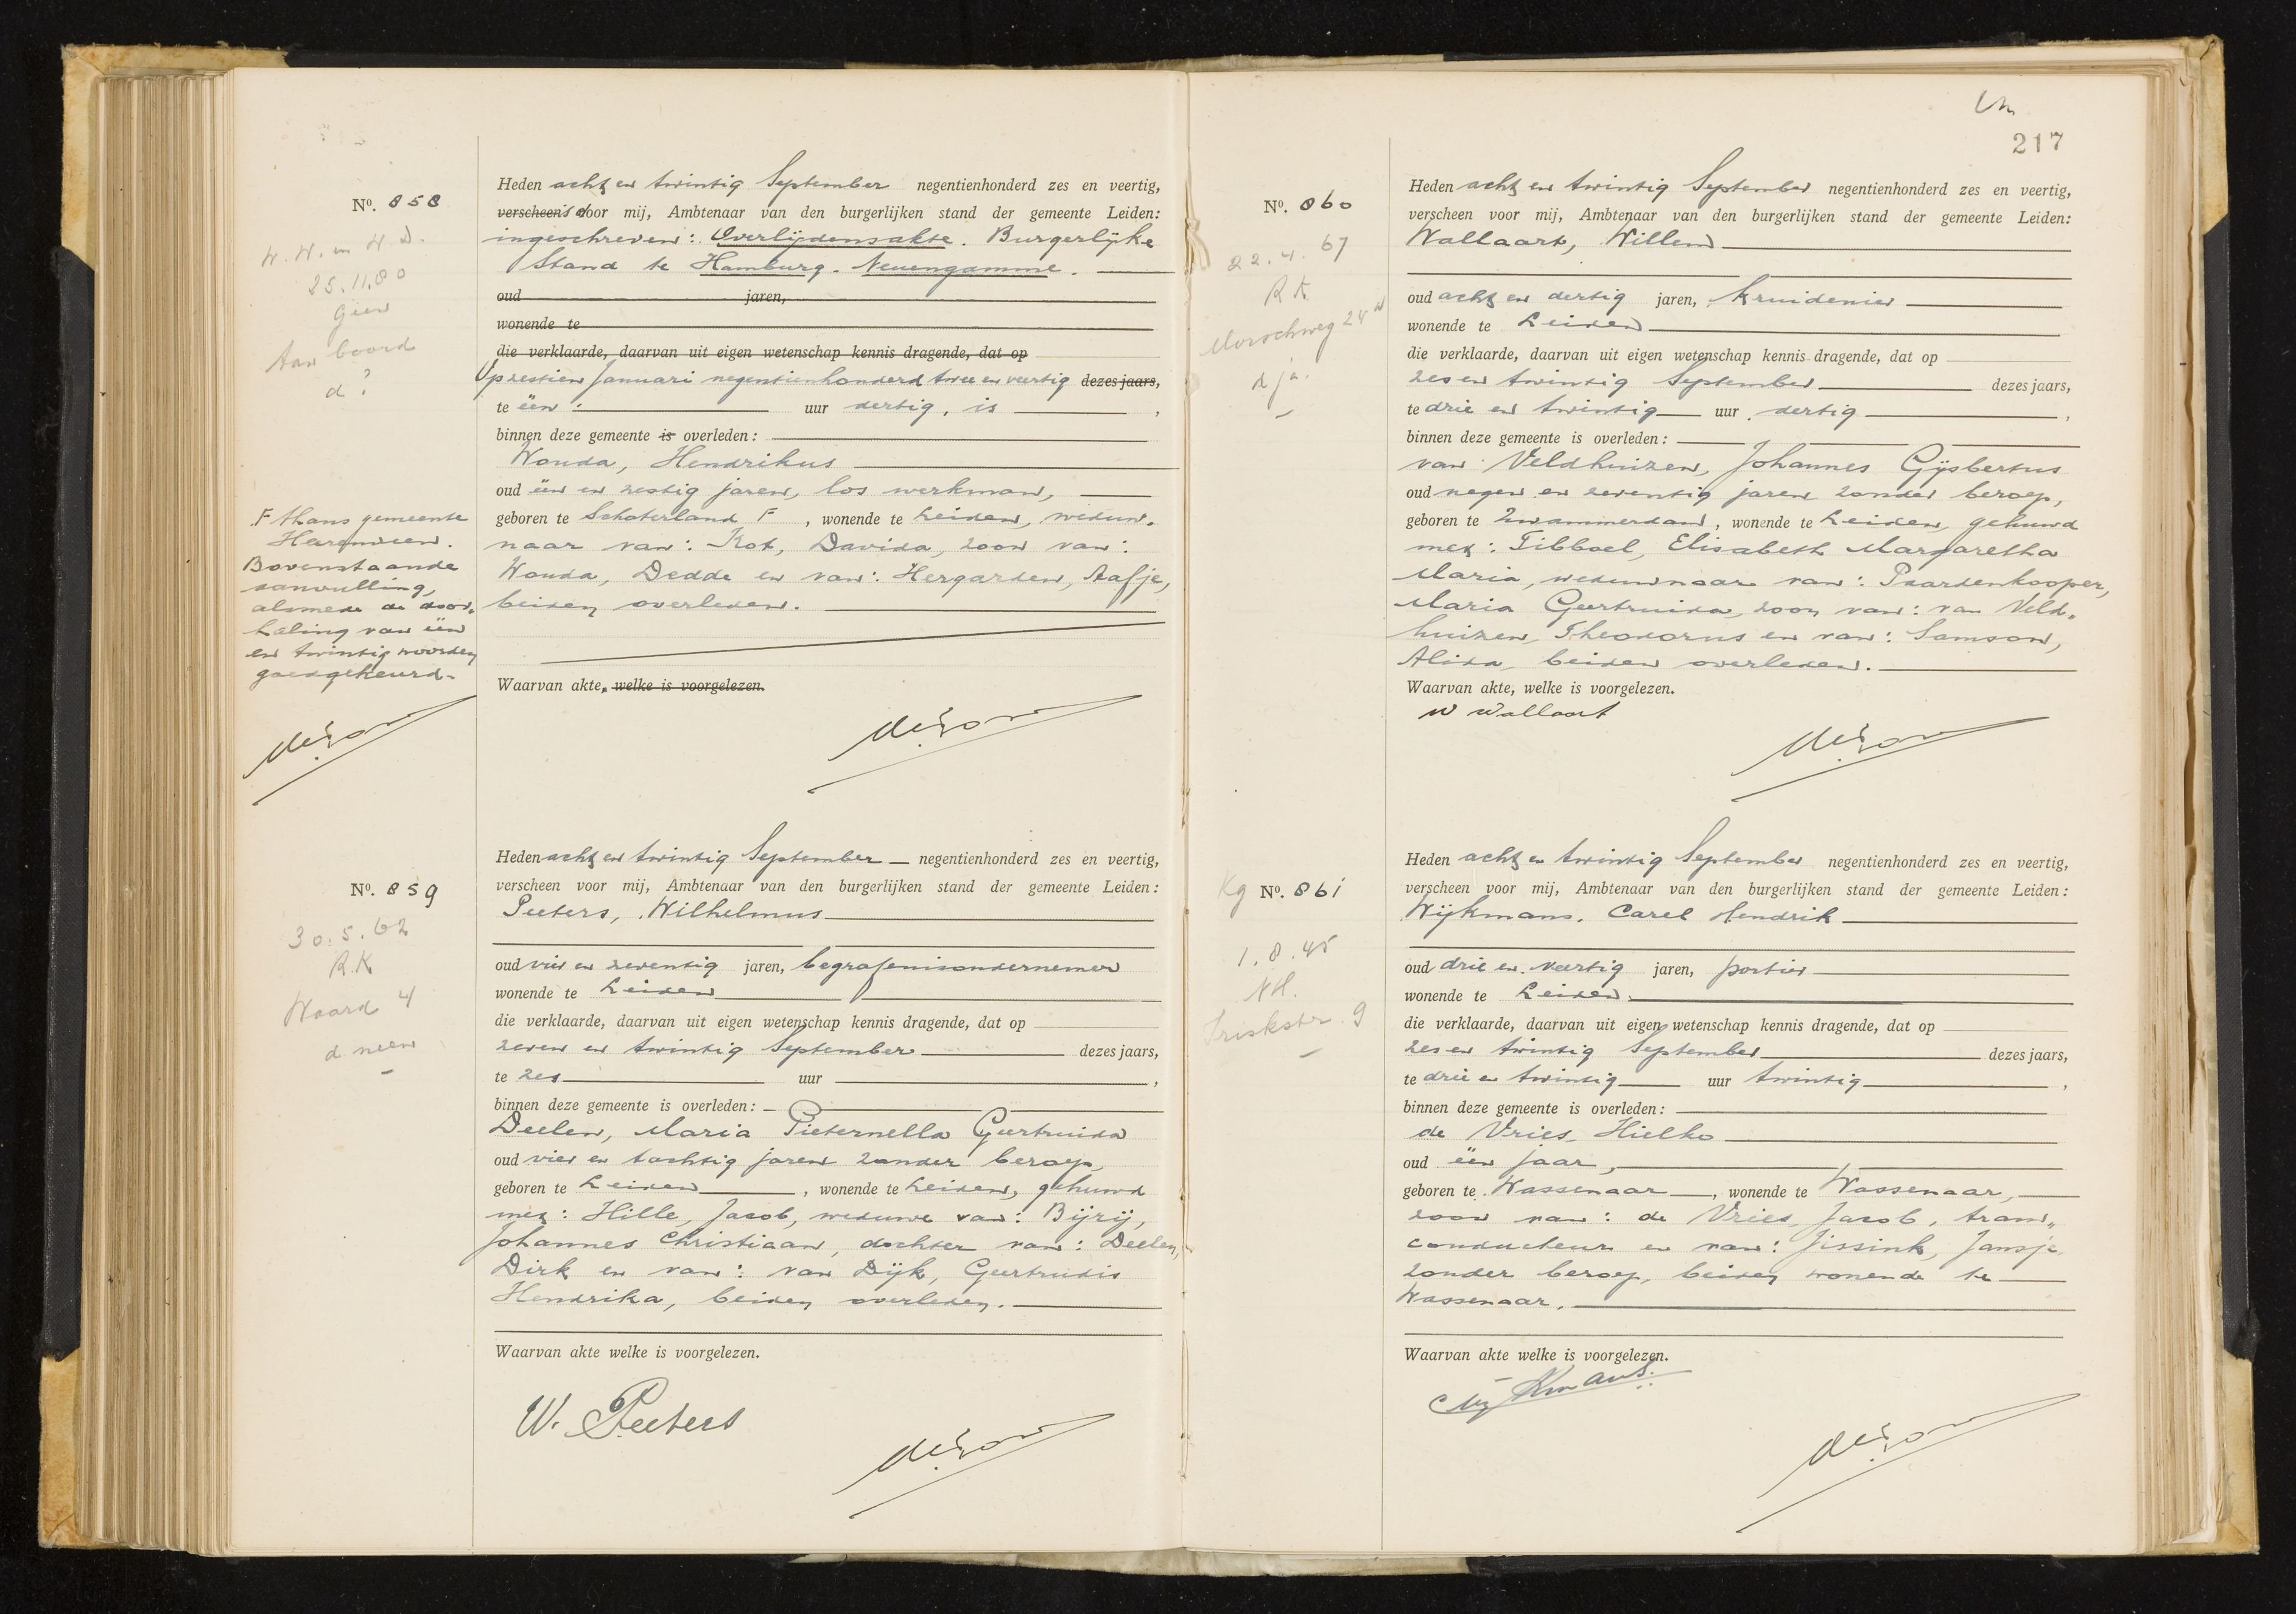 217
No. 858
W.W. en W.D.
25.11.80
Geen
Aan boord
d?
Heden acht en twintig September negentienhonderd zes en veertig,
verscheen's door mij, Ambtenaar van den burgerlijken stand der gemeente Leiden:
ingeschreven: Overlijdensakte. Burgerlijke
Stand te Hamburg-Neuengamme.
oud jaren,
wonende te
die verklaarde, daarvan uit eigen wetenschap kennis dragende, dat op
Op zestien Januari negentienhonderd twee en veertig dezes jaars,
te één uur dertig, is ,
binnen deze gemeente is overleden:
Wouda, Hendrikus
oud één en zestig jaren, los werkman,
geboren te Schoterland F , wonende te Leiden, weduw-
naar van: Kok, Davida, zoon van:
Wouda, Dedde en van: Hergarden, Aafje,
beiden overleden.
Waarvan akte, welke is voorgelezen.
F thans gemeente
Heerenveen.
Bovenstaande
aanvulling,
alsmede de door-
haling van één
en twintig woorden
goedgekeurd-
No. 859
30.5.62
R.K
Waard 4
d neen
Heden acht en twintig September negentienhonderd zes en veertig,
verscheen voor mij, Ambtenaar van den burgerlijken stand der gemeente Leiden:
Peeters, Wilhelmus
oud vier en zeventig jaren, begrafenisondernemer
wonende te Leiden
die verklaarde, daarvan uit eigen wetenschap kennis dragende, dat op
zeven en twintig September dezes jaars,
te zes uur ,
binnen deze gemeente is overleden:
Deelen, Maria Pieternella Geertruida
oud vier en tachtig jaren zonder beroep,
geboren te Leiden , wonende te Leiden, gehuwd
met: Hille, Jacob, weduwe van: Bijrij,
Johannes Christiaan, dochter van: Deelen,
Dirk en van: van Dijk, Geertrudis
Hendrika, beiden overleden.
Waarvan akte welke is voorgelezen.
W. Peeters
No. 860
22.4.67
R K
Morschweg 24
d ja.
Heden acht en twintig September negentienhonderd zes en veertig,
verscheen voor mij, Ambtenaar van den burgerlijken stand der gemeente Leiden:
Wallaart, Willem
oud acht en dertig jaren, kruidenier
wonende te Leiden
die verklaarde, daarvan uit eigen wetenschap kennis dragende, dat op
zes en twintig September dezes jaars,
te drie en twintig uur dertig ,
binnen deze gemeente is overleden:
van Veldhuizen, Johannes Gijsbertus
oud negen en zeventig jaren zonder beroep,
geboren te Zwammerdam, wonende te Leiden, gehuwd
met: Tibboel, Elisabeth Margaretha
Maria, weduwnaar van: Paardenkooper,
Maria Geertruida, zoon van: van Veld-
huizen, Theodorus en van: Samson,
Alida, beiden overleden.
Waarvan akte, welke is voorgelezen.
W Wallaart
Kg No. 861
1.8.45
NH.
9
Heden acht en twintig September negentienhonderd zes en veertig,
verscheen voor mij, Ambtenaar van den burgerlijken stand der gemeente Leiden:
Wijkmans, Carel Hendrik
oud drie en veertig jaren, portier
wonende te Leiden
die verklaarde, daarvan uit eigen wetenschap kennis dragende, dat op
zes en twintig September dezes jaars,
te drie en twintig uur twintig ,
binnen deze gemeente is overleden:
de Vries, Hielko
oud één jaar,
geboren te Wassenaar, wonende te Wassenaar,
zoon van: de Vries, Jacob, tram-
conducteur en van: Jissink, Jansje
zonder beroep, beiden wonende te
Wassenaar.
Waarvan akte welke is voorgelezen.